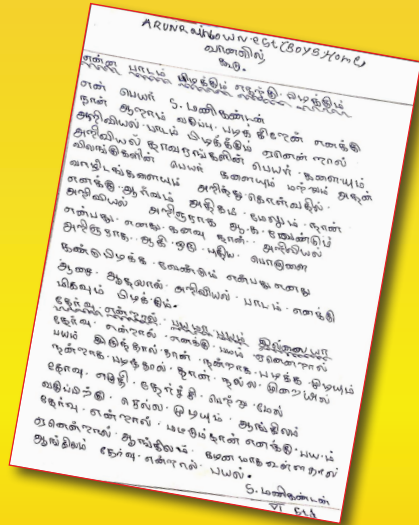 ARUN Rainbow
வானவில்
கூடு.
என்ன பாடம் பிடிக்கும் எதற்கு பிடிக்கும்
என் பெயர் S. மணிகண்டன்
நான் ஆறாம் வகுப்பு படிக்கிறேன் எனக்கு
அறிவியல் பாடம் பிடிக்கும் ஏனென்றால்
அறிவியல் தாவரங்களின் பெயர் களையும்
விலங்குகளின் பெயர் களையும் மற்றும் அதன்
வாழிடங்களையும் அறிந்து கொள்வதில்
எனக்கு ஆர்வம் அதிகம். மேலும் நான்
அறிவியல் அறிஞராக ஆக வேண்டும்
என்பது எனது கனவு நான் அறிவியல்
அறிஞராக ஆகி ஒரு புதிய பொருளை
கண்டுபிடிக்க வேண்டும் என்பது எனது
ஆசை. ஆதலால் அறிவியல் பாடம் எனக்கு
மிகவும் பிடிக்கும்.
தேர்வு என்றால் பயமா பயம் இல்லையா
தேர்வு என்றால் எனக்கு பயம் ஏனென்றால்
பயம் இருந்தால் தான் நன்றாக படிக்க முடியும்
நன்றாக படித்தால் தான் நல்ல முறையில்
தேர்வு எழுதி தேர்ச்சி பெற்று மேல்
வகுப்பிற்கு செல்ல முடியும் ஆங்கிலம்
தேர்வு என்றால் மட்டும் தான் எனக்கு பயம்
ஏனென்றால் ஆங்கிலம்
ஆங்கிலம் தேர்வு என்றால் பயம்.
S. மணிகண்டன்
VI std